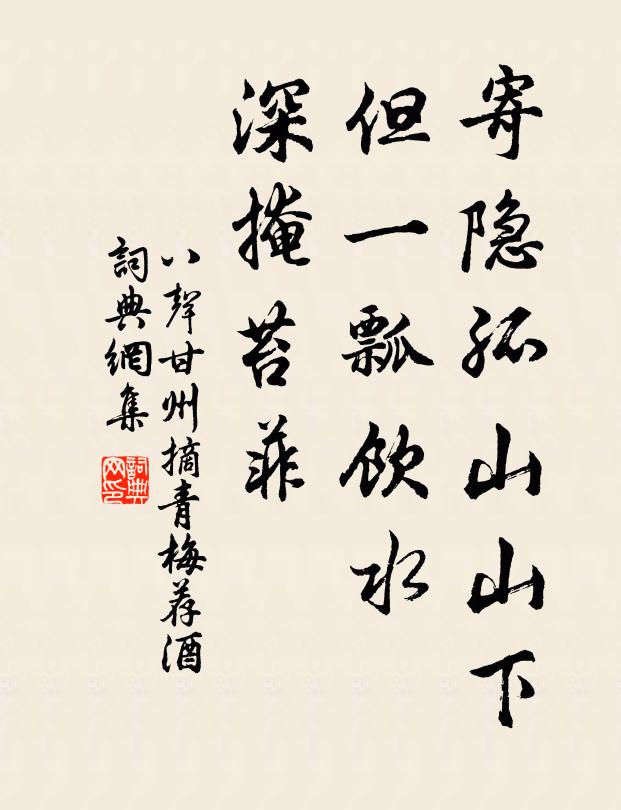 寄隐孤山山下
但一瓢饮水
深掩苔菲
八聲甘州摘青梅荐酒
詞典網集
詞典网印